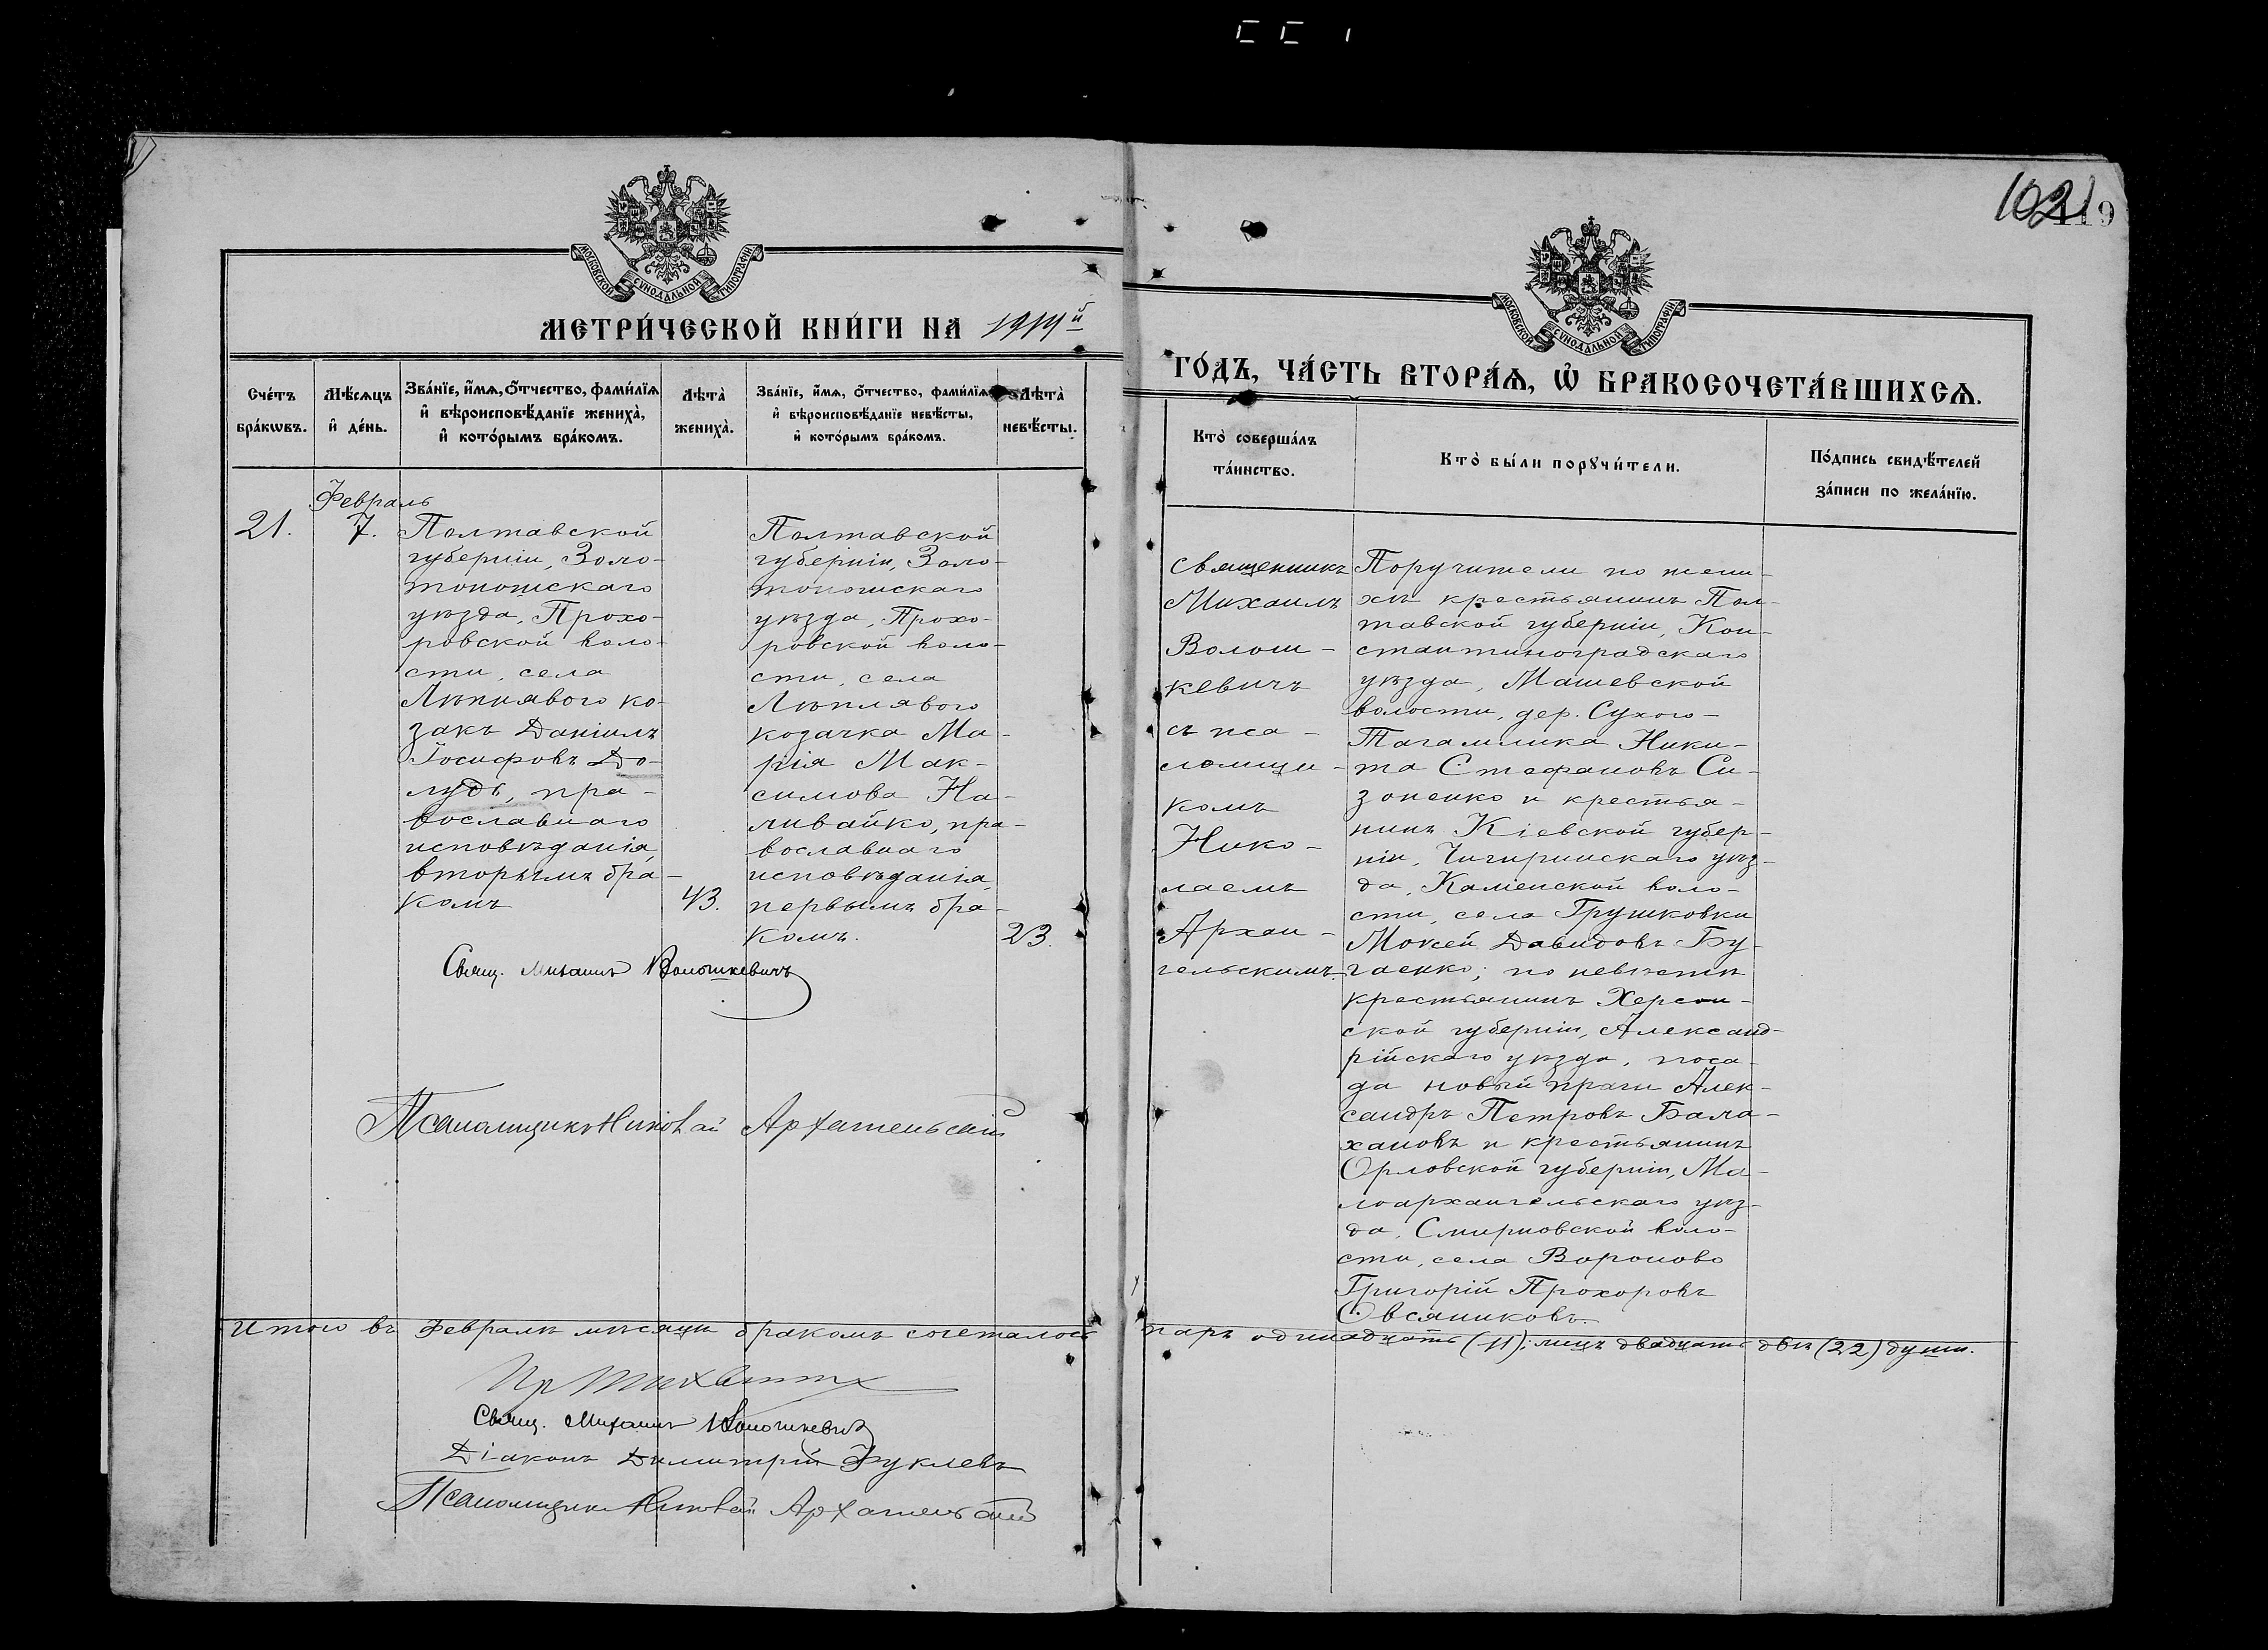 1021
119
МОСКОВСКОЙ СѴНОДАЛЬНОЙ ТИПОГРАФІИ
МОСКОВСКОЙ СѴНОДАЛЬНОЙ ТИПОГРАФІИ
МЕТРИ́ЧЕСКОЙ КНИ́ГИ НА 1914й
ГО́ДЪ, ЧА́СТЬ ВТОРА́Ѧ, Ѽ БРАКОСОЧЕТА́ВШИХСѦ.
Сче́тъ
бра́кѡвъ.
Мѣ́сѧцъ
и҆ де́нь.
Зва́нїе, и҆́мѧ, ѻ҆́тчество, фами́лїѧ
и҆ вѣроисповѣ́данїе жениха̀,
и҆ кото́рымъ бра́комъ.
Лѣта̀
жениха̀.
Зва́нїе, и҆́мѧ, ѻ҆́тчество, фами́лїѧ
и҆ вѣроисповѣ́данїе невѣ́сты,
и҆ кото́рымъ бра́комъ.
Лѣта̀
невѣ́сты.
Кто̀ соверша́лъ
та́инство.
Кто̀ бы́ли порꙋчи́тели.
По́дпись свидѣ́телей
за́писи по жела́нїю.
21.
Февраль
7.
Полтавской
губерніи, Золо-
тоношскаго
уѣзда, Прохо-
ровской воло-
сти, села
Лѣплявого ко-
закъ Даніилъ
Іосифовъ До-
лудъ, пра-
вославнаго
исповѣданія,
вторымъ бра-
комъ
43.
Полтавской
губерніи, Золо-
тоношскаго
уѣзда, Прохо-
ровской воло-
сти, села
Лѣплявого
козачка Ма-
рія Мак-
симова На-
ливайко, пра-
вославнаго
исповѣданія,
первымъ бра-
комъ.
23.
Свящ. Михаилъ Волошкевичъ
Псаломщикъ Николай Архангельскій
Священникъ
Михаилъ
Волош-
кевичъ
съ пса-
ломщи-
комъ
Нико-
лаемъ
Архан-
гельскимъ.
Поручители по жени-
хѣ крестьянинъ Пол-
тавской губерніи, Кон-
стантиноградскаго
уѣзда, Машевской
волости, дер. Сухого-
Тагамлика Ники-
та Стефановъ Си-
зоненко и крестья-
нинъ Кіевской губер-
ніи, Чигиринскаго уѣз-
да, Каменской воло-
сти, села Грушковки
Моисей Давидовъ Бу-
гаенко; по невѣстѣ
крестьянинъ Херсон-
ской губерніи, Александ-
рійскаго уѣзда, поса-
да новый праги Алек-
сандръ Петровъ Бала-
хановъ и крестьянинъ
Орловской губерніи, Ма-
лоархангельскаго уѣз-
да, Смирновской воло-
сти, села Вороново
Григорій Прохоровъ
Овсяниковъ.
Итого въ Февралѣ мѣсяцѣ бракомъ сочеталось паръ одинадцать (11); лицъ двадцать двѣ (22) души.
Свящ. Михаилъ Волошкевичъ
Діаконъ Димитрій Фуклевъ
Псаломщикъ Николай Архангельскій